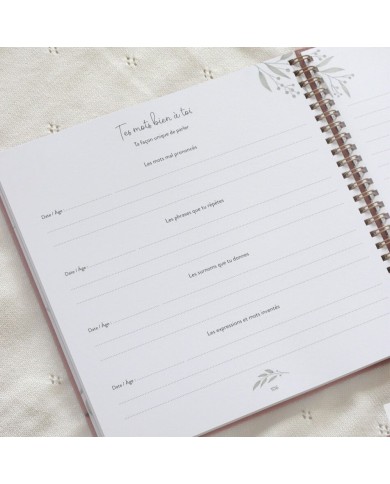 Tes mots bien à toi
Ta façon unique de parler
Les mots mal prononcés
Date / Âge :
Les phrases que tu répètes
Date / Âge :
Les surnoms que tu donnes
Date / Âge :
Les expressions et mots inventés
Date / Âge :